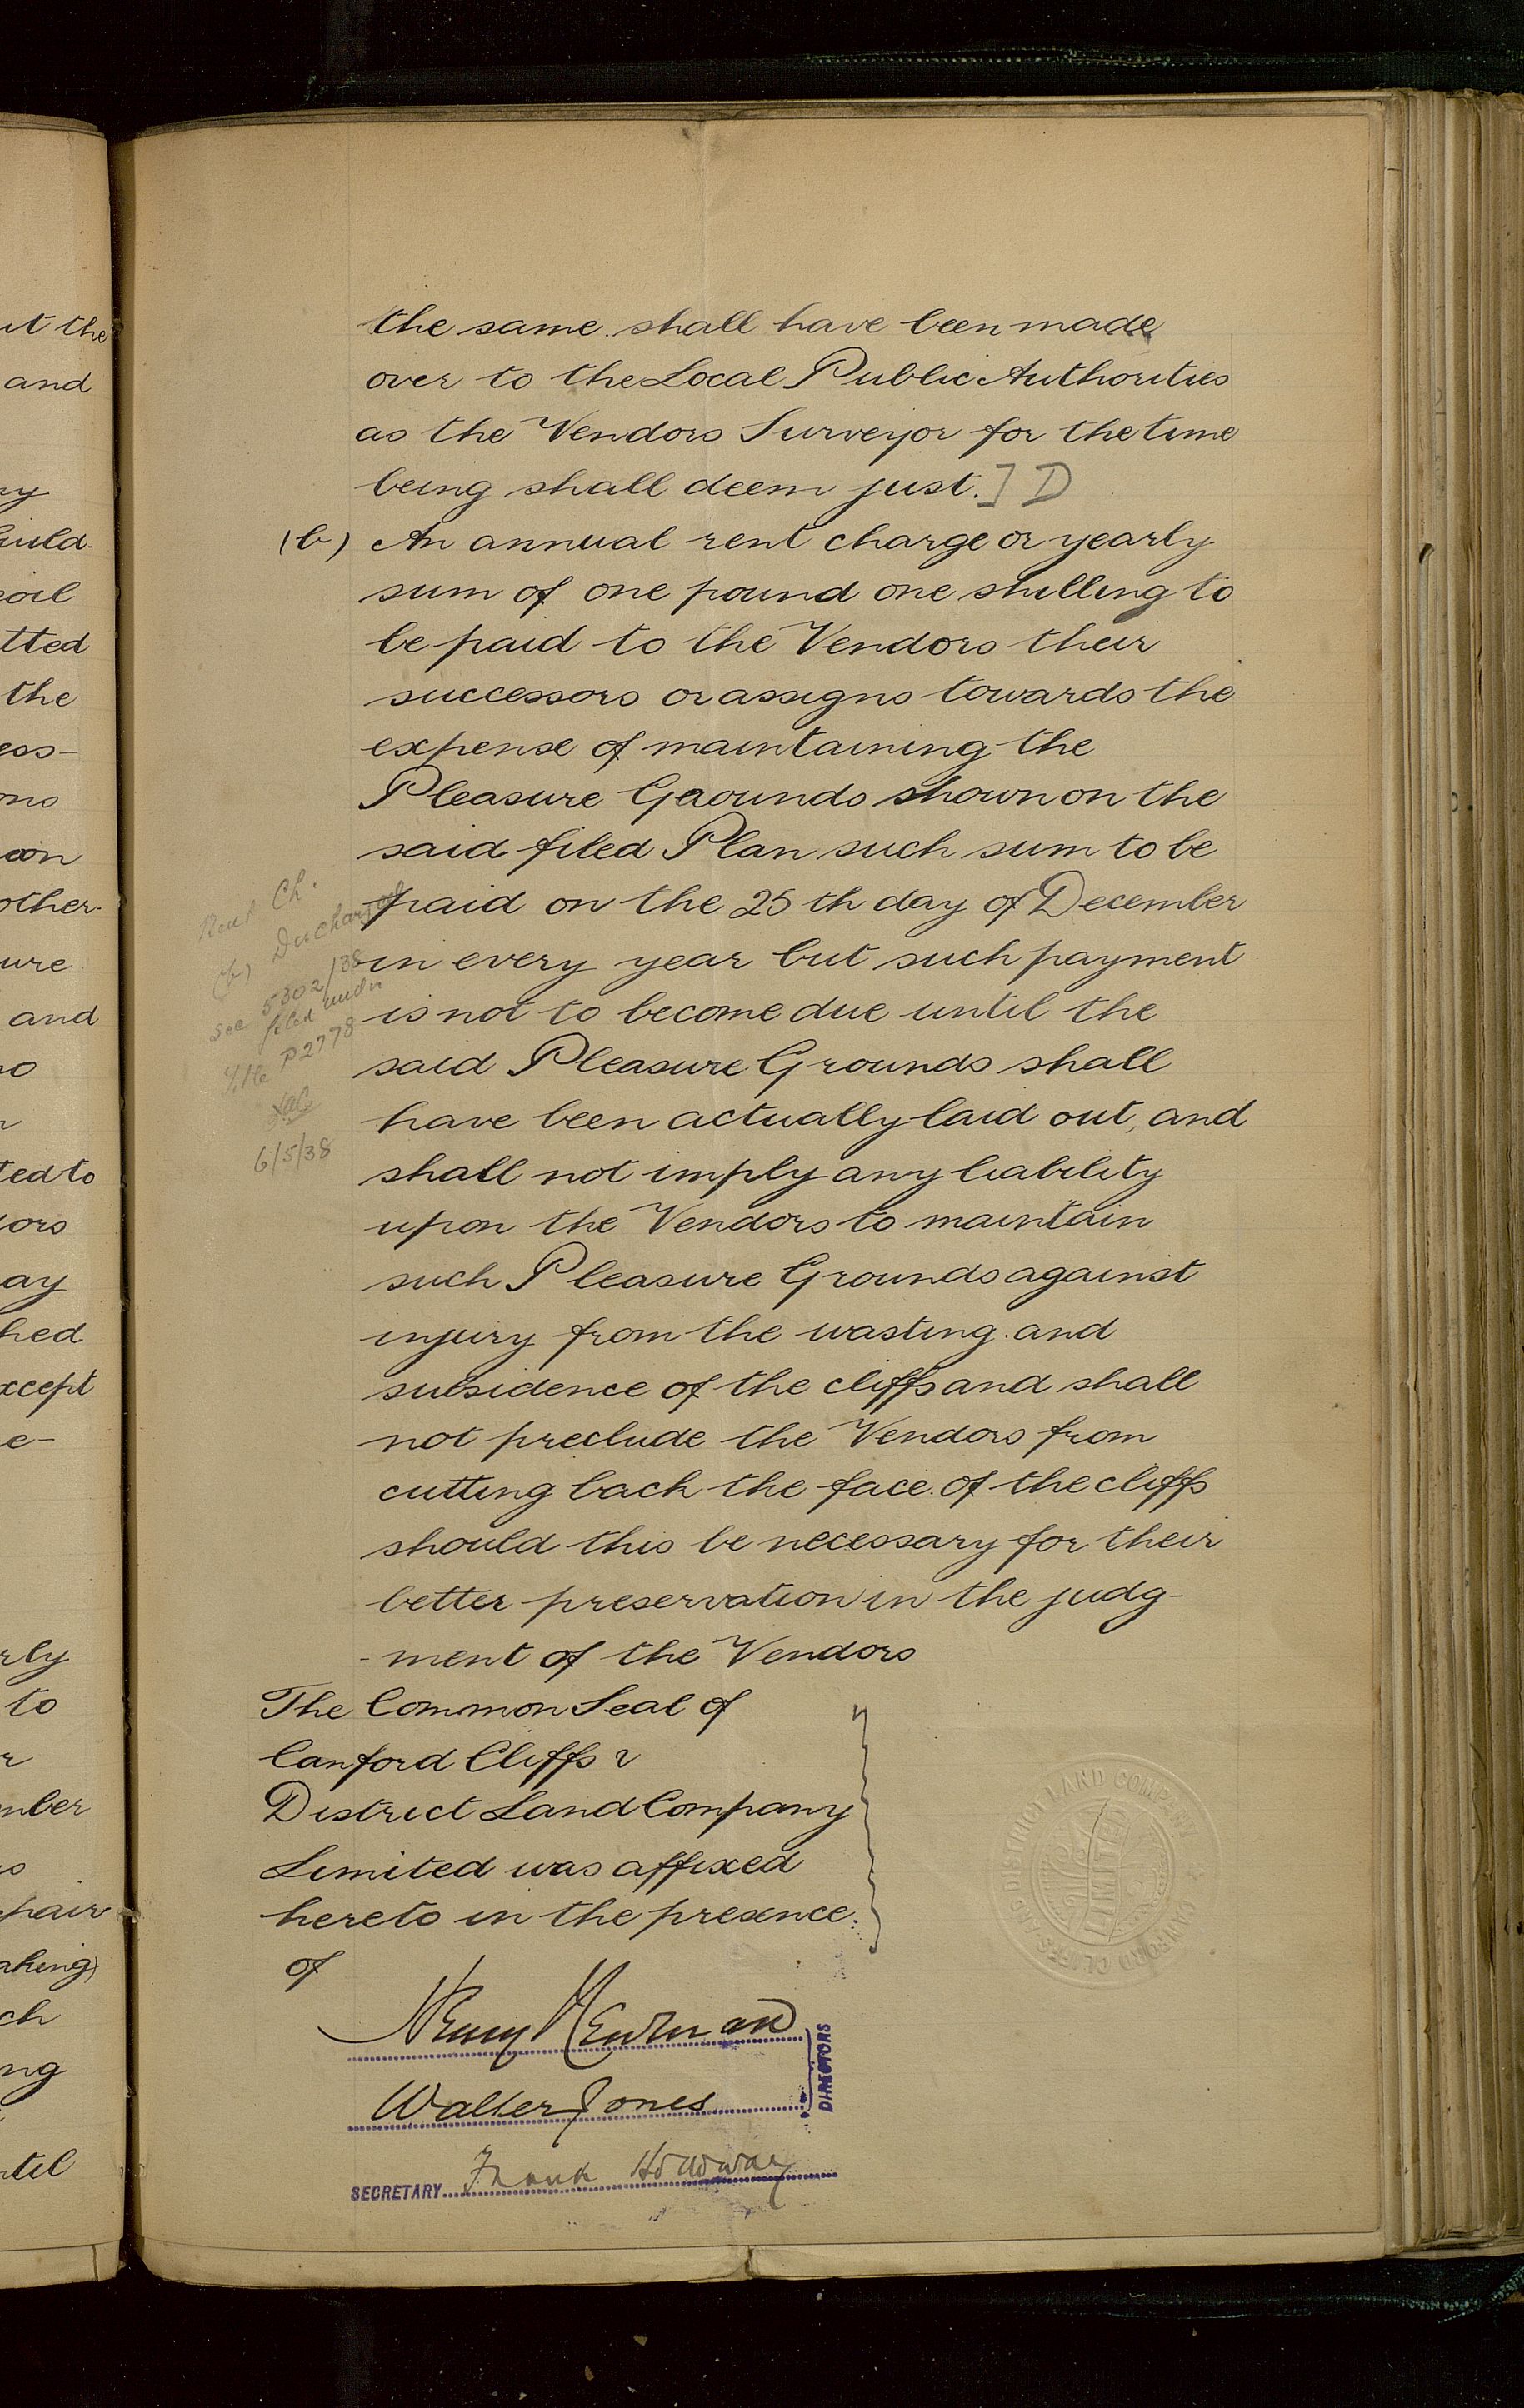 ut the
and
ny
build-
soil
tted
the
ess-
ons
oon
other-
ure
and
no
ted to
dors
ay
hed
xcept
e-
rly
to
r
mber
pair
aking)
ch
ng
ntil
the same shall have been made
over to the Local Public Authorities
as the Vendors Surveyor for the time
being shall deem just.] D
(b) An annual rent charge or yearly
sum of one pound one shilling to
be paid to the Vendors their
successors or assigns towards the
expense of maintaining the
Pleasure Grounds shown on the
said filed Plan such sum to be
paid on the 25th day of December
in every year but such payment
is not to become due until the
said Pleasure Grounds shall
have been actually laid out, and
shall not imply any liability
upon the Vendors to maintain
such Pleasure Grounds against
injury from the wasting and
subsidence of the cliffs and shall
not preclude the Vendors from
cutting back the face of the cliffs
should this be necessary for their
better preservation in the judg-
-ment of the Vendors
Rent Ch.
(b) Discharged
see 5302/38
filed under
Title P2778
6/5/38
The Common Seal of
Canford Cliffs &
District Land Company
Limited was affixed
hereto in the presence
of
CANFORD CLIFFS & DISTRICT LAND COMPANY
LIMITED
Henry Newman
Walter Jones
DIRECTORS
SECRETARY Frank Holloway